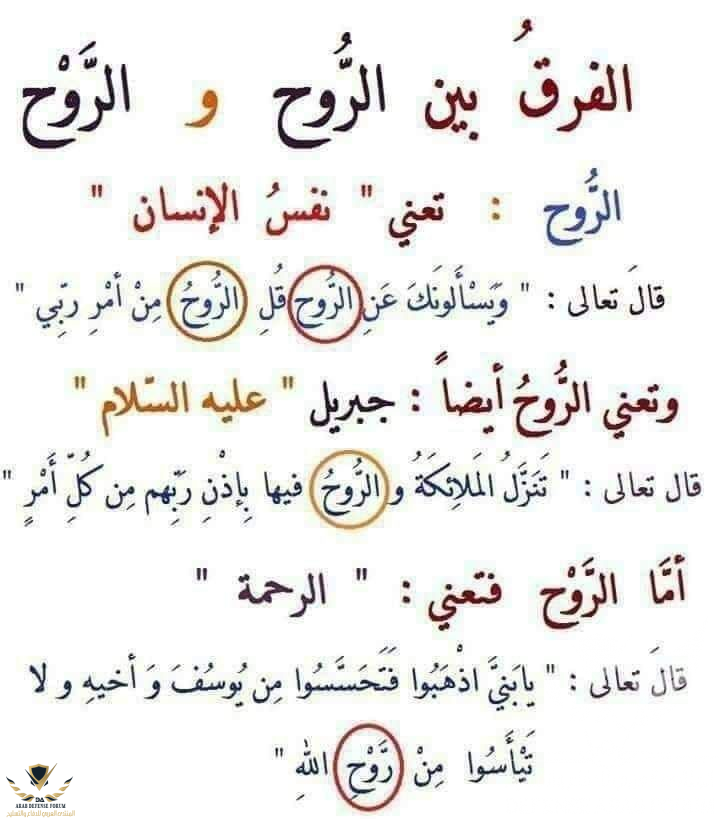 الفرقُ بين الرُّوح و الرَّوْح
الرُّوح : تعني " نفسُ الإنسان "
قالَ تعالى : " وَيَسْأَلونَكَ عَنِ الرُّوح قُلِ الرُّوحُ مِنْ أمْرِ ربِّي "
وتعني الرُّوحُ أيضاً : جبريل " عليه السّلام "
قال تعالى : " تَنَزَّلُ المَلائِكَةُ و الرُّوحُ فيها بِإذْنِ رَبِّهم مِن كُلِّ أَمْرٍ "
أمَّا الرَّوْح فتعني : " الرحمة "
قالَ تعالى : " يابَنيَّ اذْهَبُوا فَتَحَسَّسُوا مِن يُوسُفَ وَ أخيهِ و لا
تَيْأَسُوا مِنْ رَّوْحِ اللهِ "
DA
ARAB DEFENSE FORUM
المنتدى العربي للدفاع والتسليح